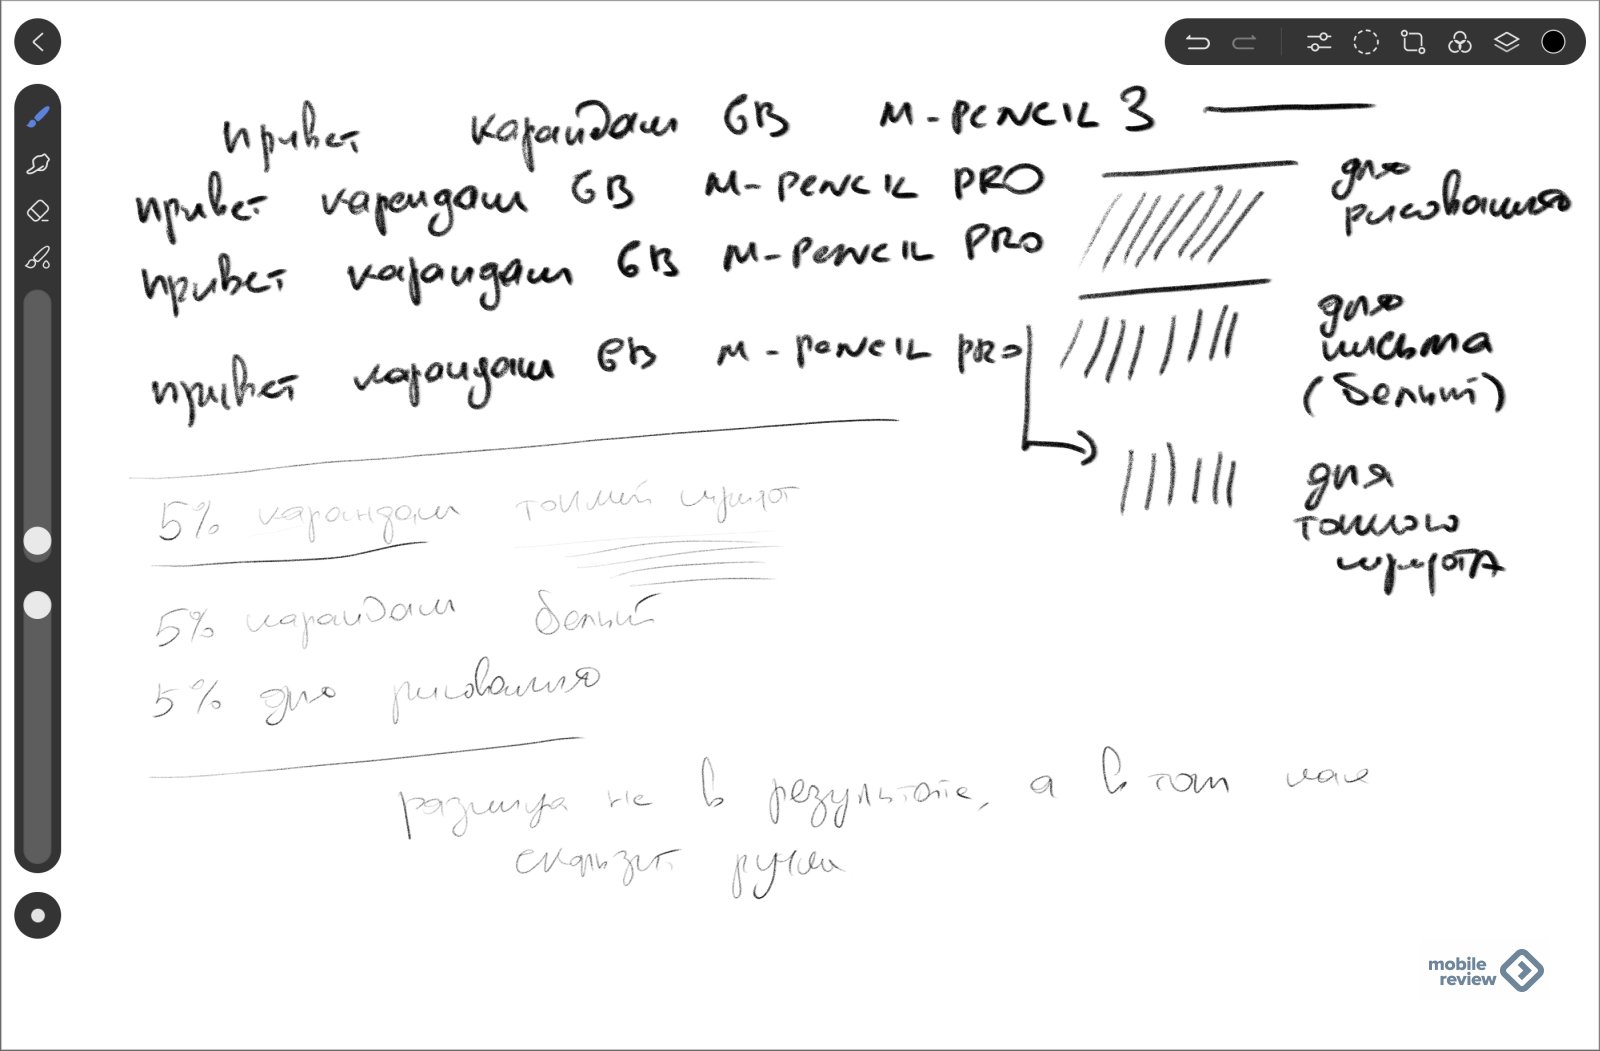 привет карандаш 6B M-PENCIL 3
привет карандаш 6B M-PENCIL PRO
для рисования
привет карандаш 6B M-PENCIL PRO
для письма (белый)
привет карандаш 6B M-PENCIL PRO
для тонкого шрифта
5% карандаш тонкий шрифт
5% карандаш белый
5% для рисования
разница не в результате, а в том как
скользит ручка
mobile
review